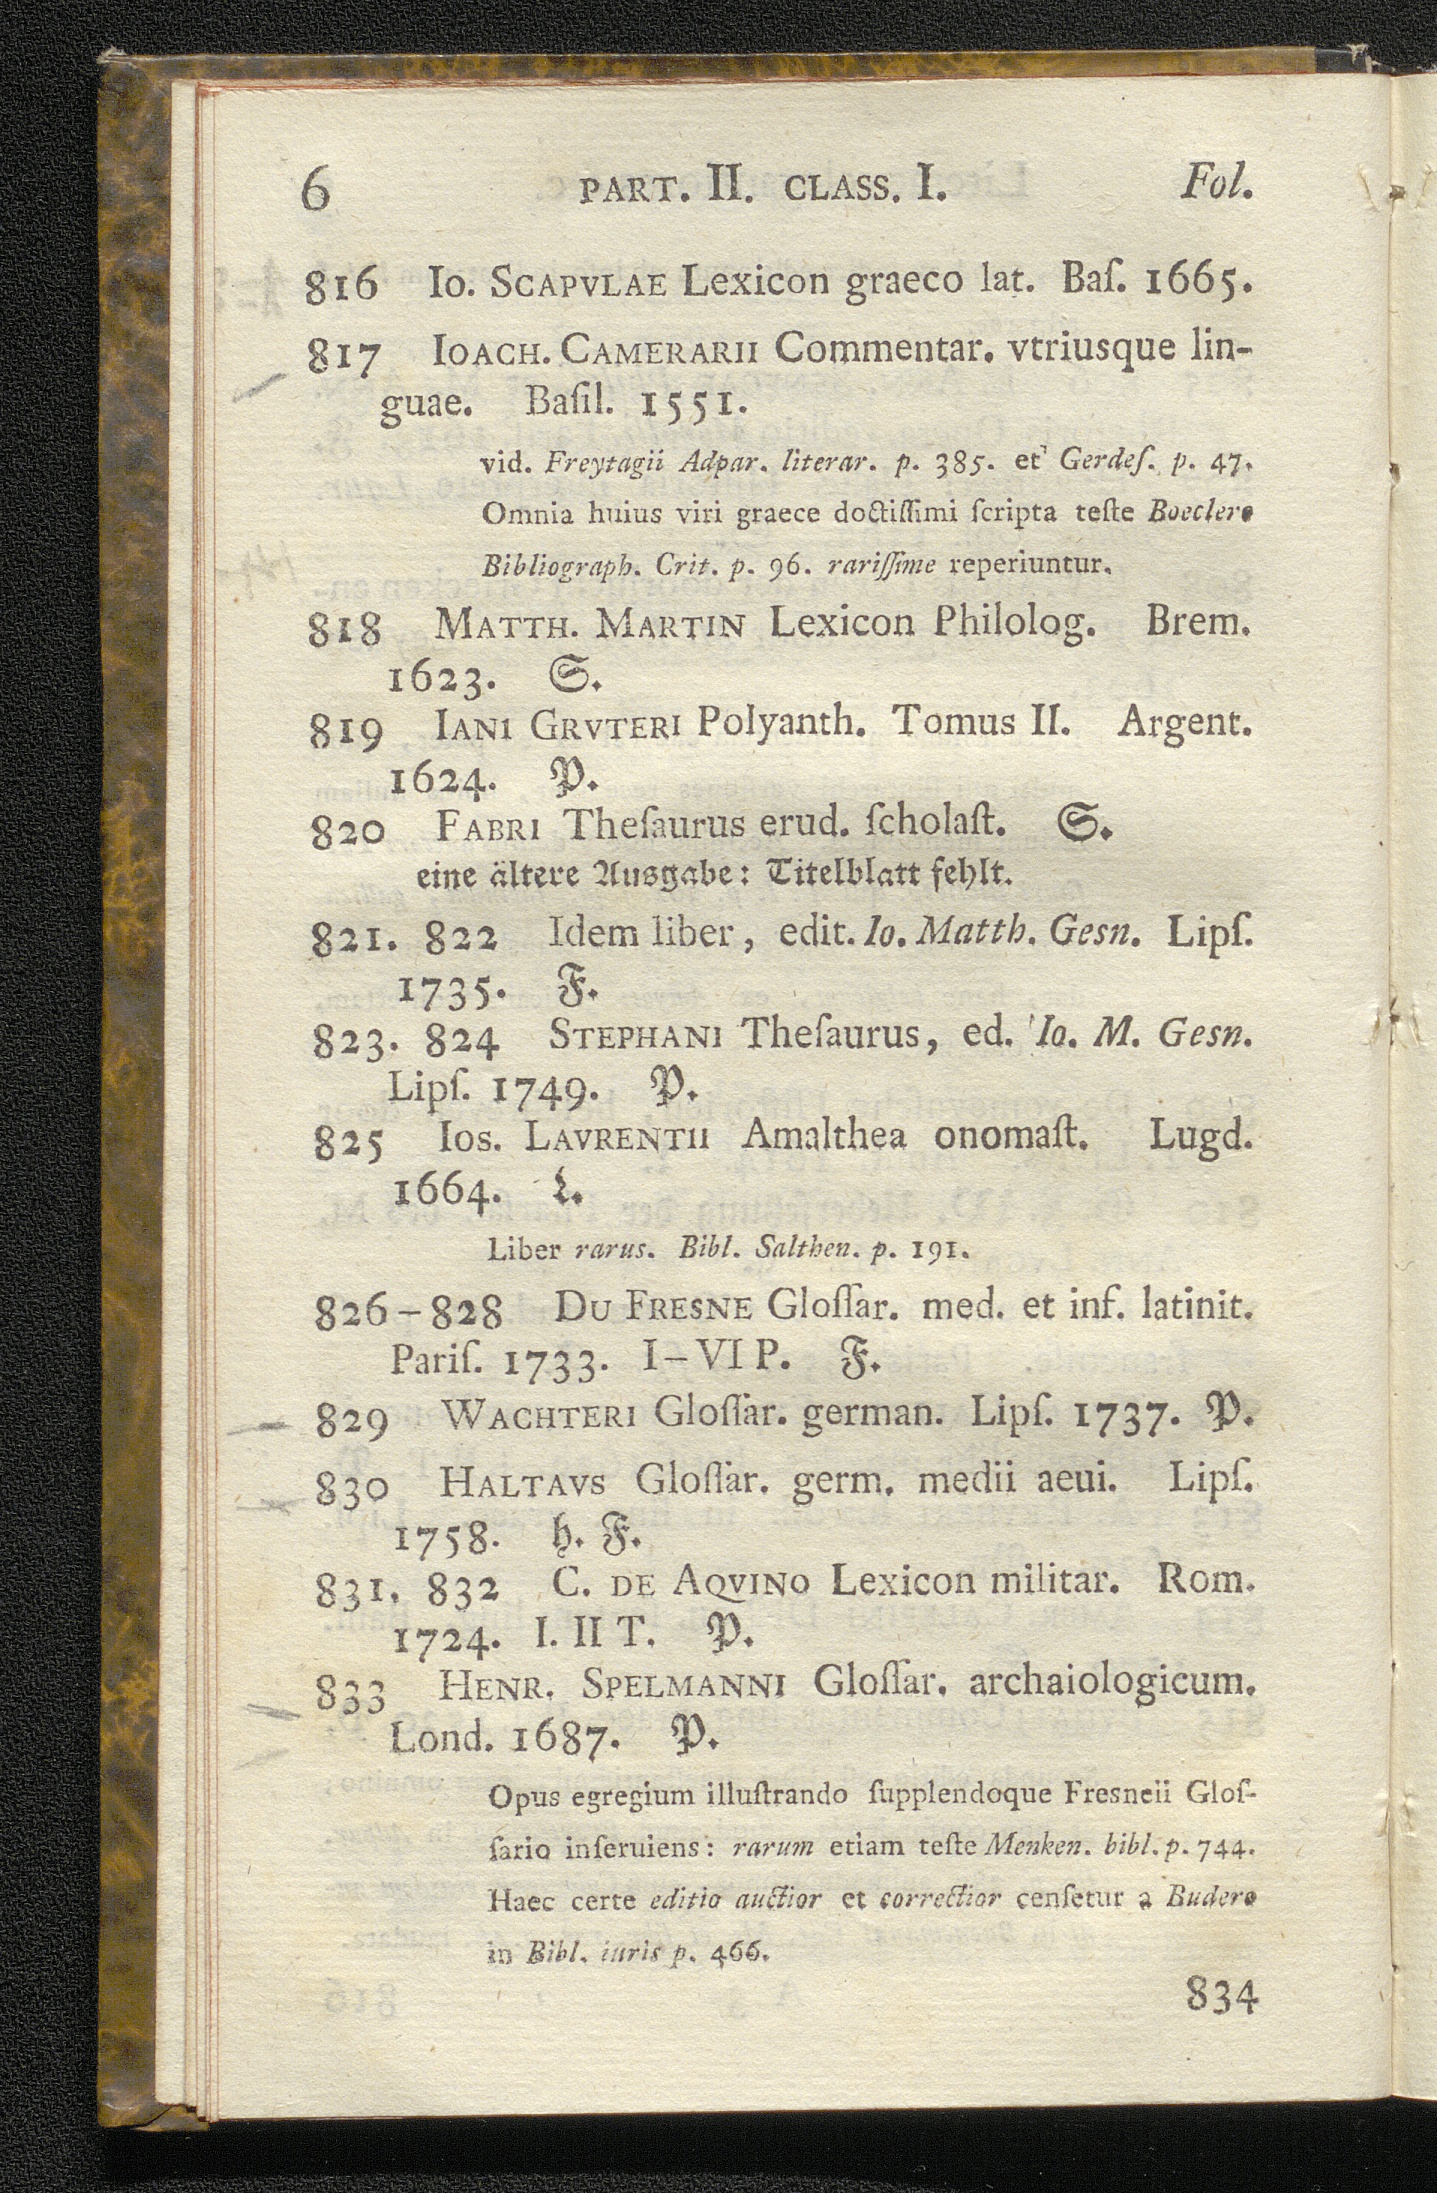 6 PART. II. CLASS. I. Fol.
816 Io. SCAPVLAE Lexicon graeco lat. Baſ. 1665.
817 IOACH. CAMERARII Commentar. vtriusque lin-
guae. Baſil. 1551.
vid. Freytagii Adpar. literar. p. 385. et Gerdeſ. p. 47.
Omnia huius viri graece doctiſſimi ſcripta teſte Boeclero
Bibliograph. Crit. p. 96. rariſſime reperiuntur.
818 MATTH. MARTIN Lexicon Philolog. Brem.
1623. S.
819 IANI GRVTERI Polyanth. Tomus II. Argent.
1624. P.
820 FABRI Theſaurus erud. ſcholaſt. S.
eine ältere Ausgabe: Titelblatt fehlt.
821. 822 Idem liber, edit. Io. Matth. Gesn. Lipſ.
1735. F.
823. 824 STEPHANI Theſaurus, ed. Io. M. Gesn.
Lipſ. 1749. P.
825 IOS. LAVRENTII Amalthea onomaſt. Lugd.
1664. L.
Liber rarus. Bibl. Salthen. p. 191.
826–828 DU FRESNE Gloſſar. med. et inf. latinit.
Pariſ. 1733. I–VI P. F.
829 WACHTERI Gloſſar. german. Lipſ. 1737. P.
830 HALTAVS Gloſſar. germ. medii aeui. Lipſ.
1758. h. F.
831. 832 C. DE AQVINO Lexicon militar. Rom.
1724. I. II T. P.
833 HENR. SPELMANNI Gloſſar. archaiologicum.
Lond. 1687. P.
Opus egregium illuſtrando ſupplendoque Fresneii Gloſ-
ſario inſeruiens: rarum etiam teſte Menken. bibl. p. 744.
Haec certe editio auctior et correctior cenſetur a Budero
in Bibl. iuris p. 466.
834